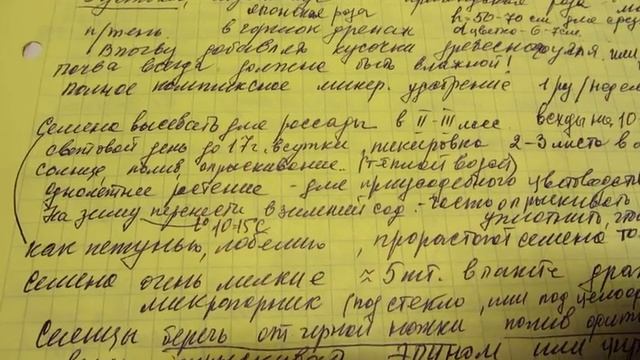 японская роза h=50-70 см для сре
п/тень в горшок дренаж d цветка-6-7см.
В почву добавлять кусочки древесного угля. или
почва всегда должна быть влажной!
полное комплексное минер. удобрение 1р/недел
Семена высевать для рассады в II-III мес всходы на 10
световой день до 17 г. сутки, пикировка 2-3 листа в о
солнце, полив, опрыскивание.. (тёплой водой)
однолетнее растение - для приусадебного цветоводст
На зиму перенести в зимний сад. - часто опрыскивать
t° 10-15°C уплотнить, что
как петунью, лобелию, прорастают семена то
семена очень мелкие ≈ 5шт. в пакете дра
микропарник (под стекло, или под целоф
Сеянцы беречь от черной ножки полив
опрыскивать Эпином или